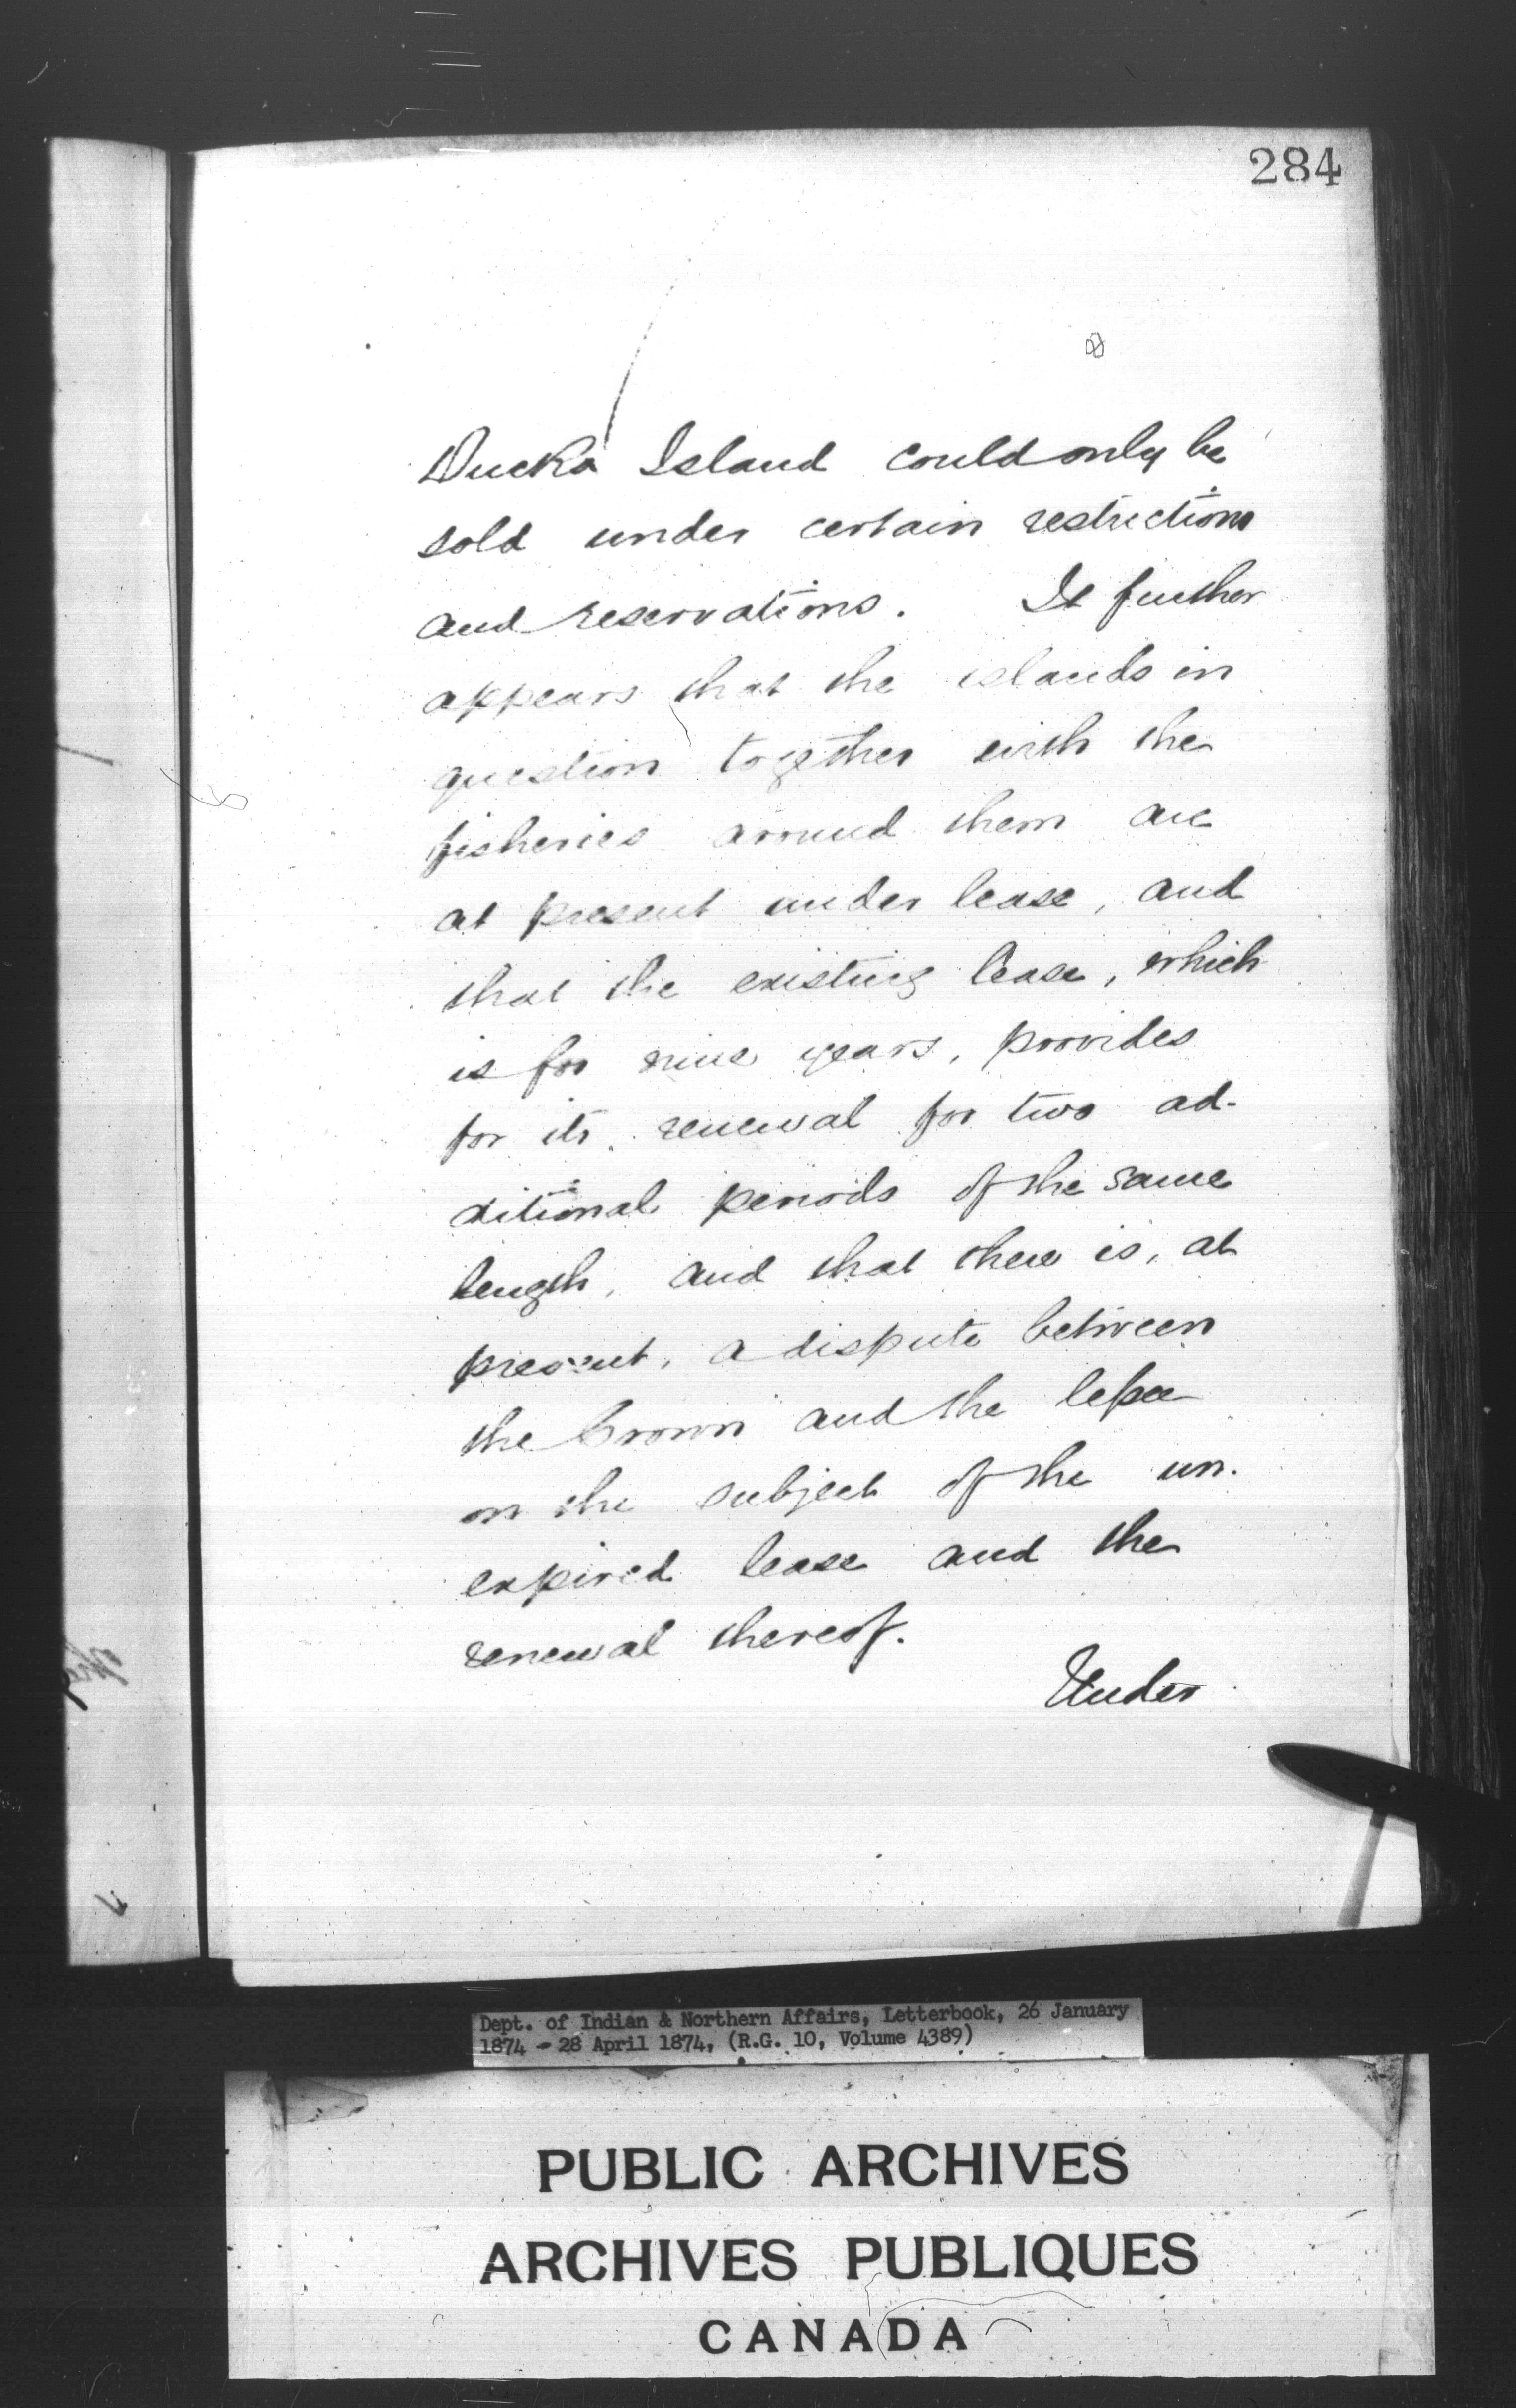 284
Ducks Island could only be
sold under certain restrictions
and reservations. It further
appears that the islands in
question together with the
fisheries around them are
at present under lease, and
that the existing lease, which
is for nine years, provides
for its renewal for two ad-
ditional periods of the same
length, and that there is, at
present, a dispute between
the Crown and the lessee
on the subject of the un-
expired lease and the
renewal thereof.
Under
Dept. of Indian & Northern Affairs, Letterbook, 26 January
1874 - 28 April 1874, (R.G. 10, Volume 4389)
PUBLIC ARCHIVES
ARCHIVES PUBLIQUES
CANADA